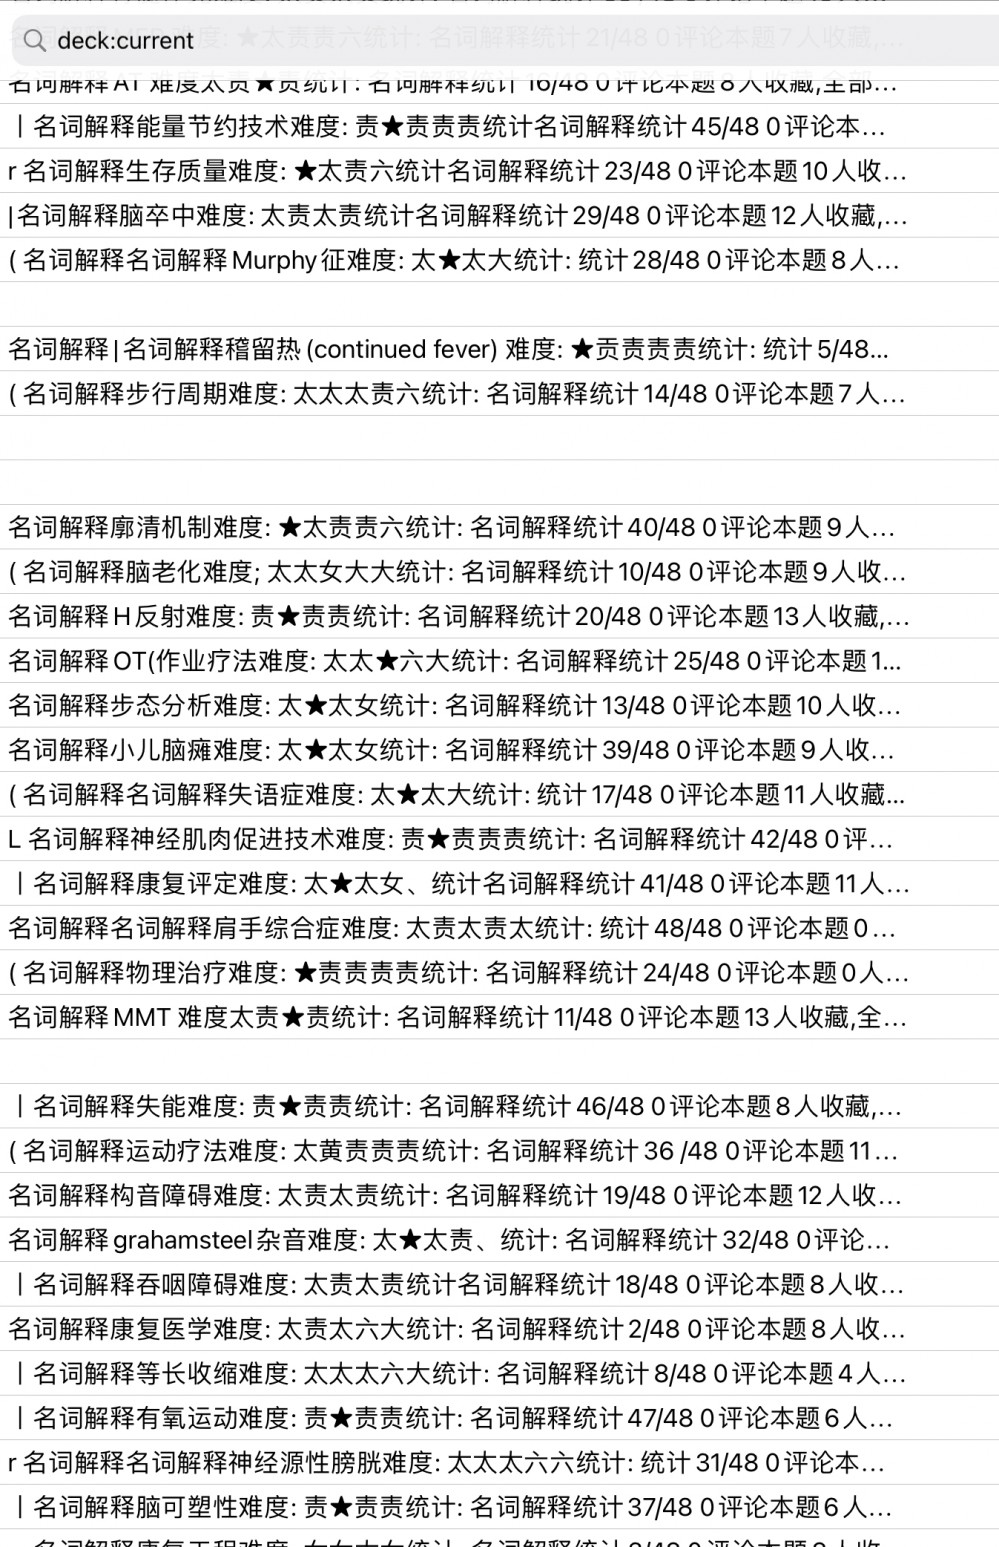 deck:current
名词解释AT 难度太责★责统计: 名词解释统计16/48 0评论本题8人收藏,全部...
丨名词解释能量节约技术难度: 责★责责责统计名词解释统计45/48 0评论本...
r 名词解释生存质量难度: ★太责六统计名词解释统计23/48 0评论本题10人收...
|名词解释脑卒中难度: 太责太责统计名词解释统计29/48 0评论本题12人收藏,...
( 名词解释名词解释Murphy征难度: 太★太大统计: 统计28/48 0评论本题8人...
名词解释|名词解释稽留热 (continued fever) 难度: ★贡责责责统计: 统计5/48...
( 名词解释步行周期难度: 太太太责六统计: 名词解释统计14/48 0评论本题7人...
名词解释廓清机制难度: ★太责责六统计: 名词解释统计40/48 0评论本题9人...
( 名词解释脑老化难度; 太太女大大统计: 名词解释统计10/48 0评论本题9人收...
名词解释H反射难度: 责★责责统计: 名词解释统计20/48 0评论本题13人收藏,...
名词解释OT(作业疗法难度: 太太★六大统计: 名词解释统计25/48 0评论本题1...
名词解释步态分析难度: 太★太女统计: 名词解释统计13/48 0评论本题10人收...
名词解释小儿脑瘫难度: 太★太女统计: 名词解释统计39/48 0评论本题9人收...
( 名词解释名词解释失语症难度: 太★太大统计: 统计17/48 0评论本题11人收藏...
L 名词解释神经肌肉促进技术难度: 责★责责责统计: 名词解释统计42/48 0评...
丨名词解释康复评定难度: 太★太女、统计名词解释统计41/48 0评论本题11人...
名词解释名词解释肩手综合症难度: 太责太责太统计: 统计48/48 0评论本题0...
( 名词解释物理治疗难度: ★责责责责统计: 名词解释统计24/48 0评论本题0人...
名词解释MMT 难度太责★责统计: 名词解释统计11/48 0评论本题13人收藏,全...
丨名词解释失能难度: 责★责责统计: 名词解释统计46/48 0评论本题8人收藏,...
( 名词解释运动疗法难度: 太黄责责责统计: 名词解释统计36 /48 0评论本题11...
名词解释构音障碍难度: 太责太责统计: 名词解释统计19/48 0评论本题12人收...
名词解释grahamsteel杂音难度: 太★太责、统计: 名词解释统计32/48 0评论...
丨名词解释吞咽障碍难度: 太责太责统计名词解释统计18/48 0评论本题8人收...
名词解释康复医学难度: 太责太六大统计: 名词解释统计2/48 0评论本题8人收...
丨名词解释等长收缩难度: 太太太六大统计: 名词解释统计8/48 0评论本题4人...
丨名词解释有氧运动难度: 责★责责统计: 名词解释统计47/48 0评论本题6人...
r 名词解释名词解释神经源性膀胱难度: 太太太六六统计: 统计31/48 0评论本...
丨名词解释脑可塑性难度: 责★责责统计: 名词解释统计37/48 0评论本题6人...